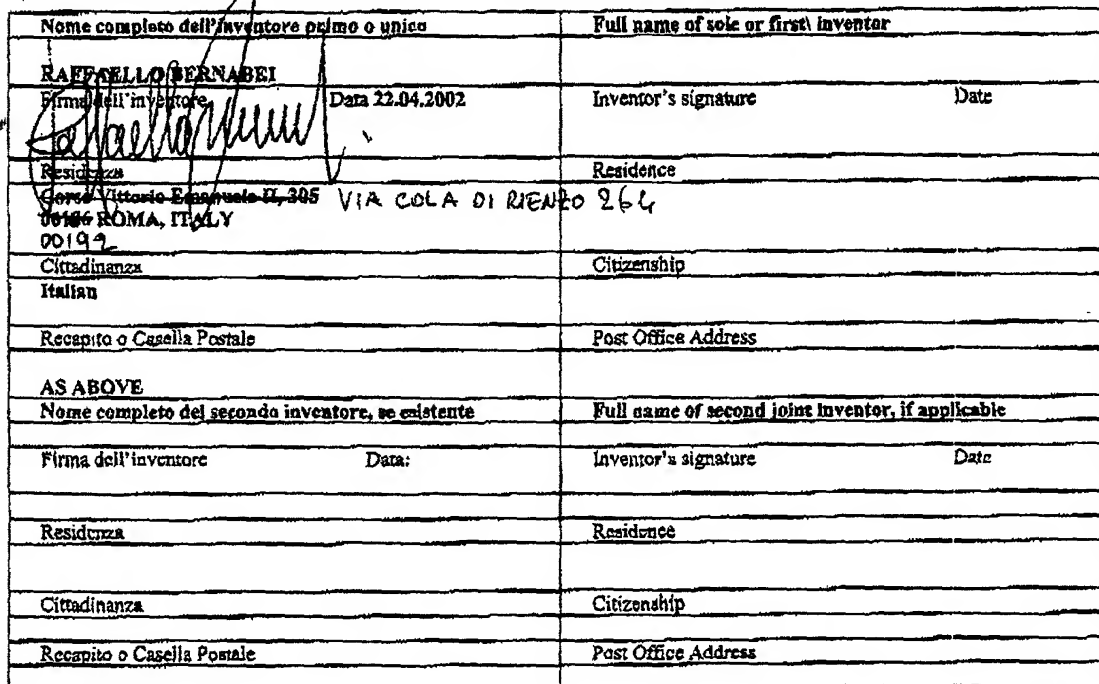 Nome completo dell'inventore primo o unico
Full name of sole or first\ inventor
RAFFAELLO BERNABEI
Firma dell'inventore Data 22.04.2002
Inventor's signature Date
Residenza
Residence
Corso Vittorio Emanuele II, 305 VIA COLA DI RIENZO 264
00186 ROMA, ITALY
00192
Cittadinanza
Citizenship
Italian
Recapito o Casella Postale
Post Office Address
AS ABOVE
Nome completo del secondo inventore, se esistente
Full name of second joint inventor, if applicable
Firma dell'inventore Data:
Inventor's signature Date
Residenza
Residence
Cittadinanza
Citizenship
Recapito o Casella Postale
Post Office Address